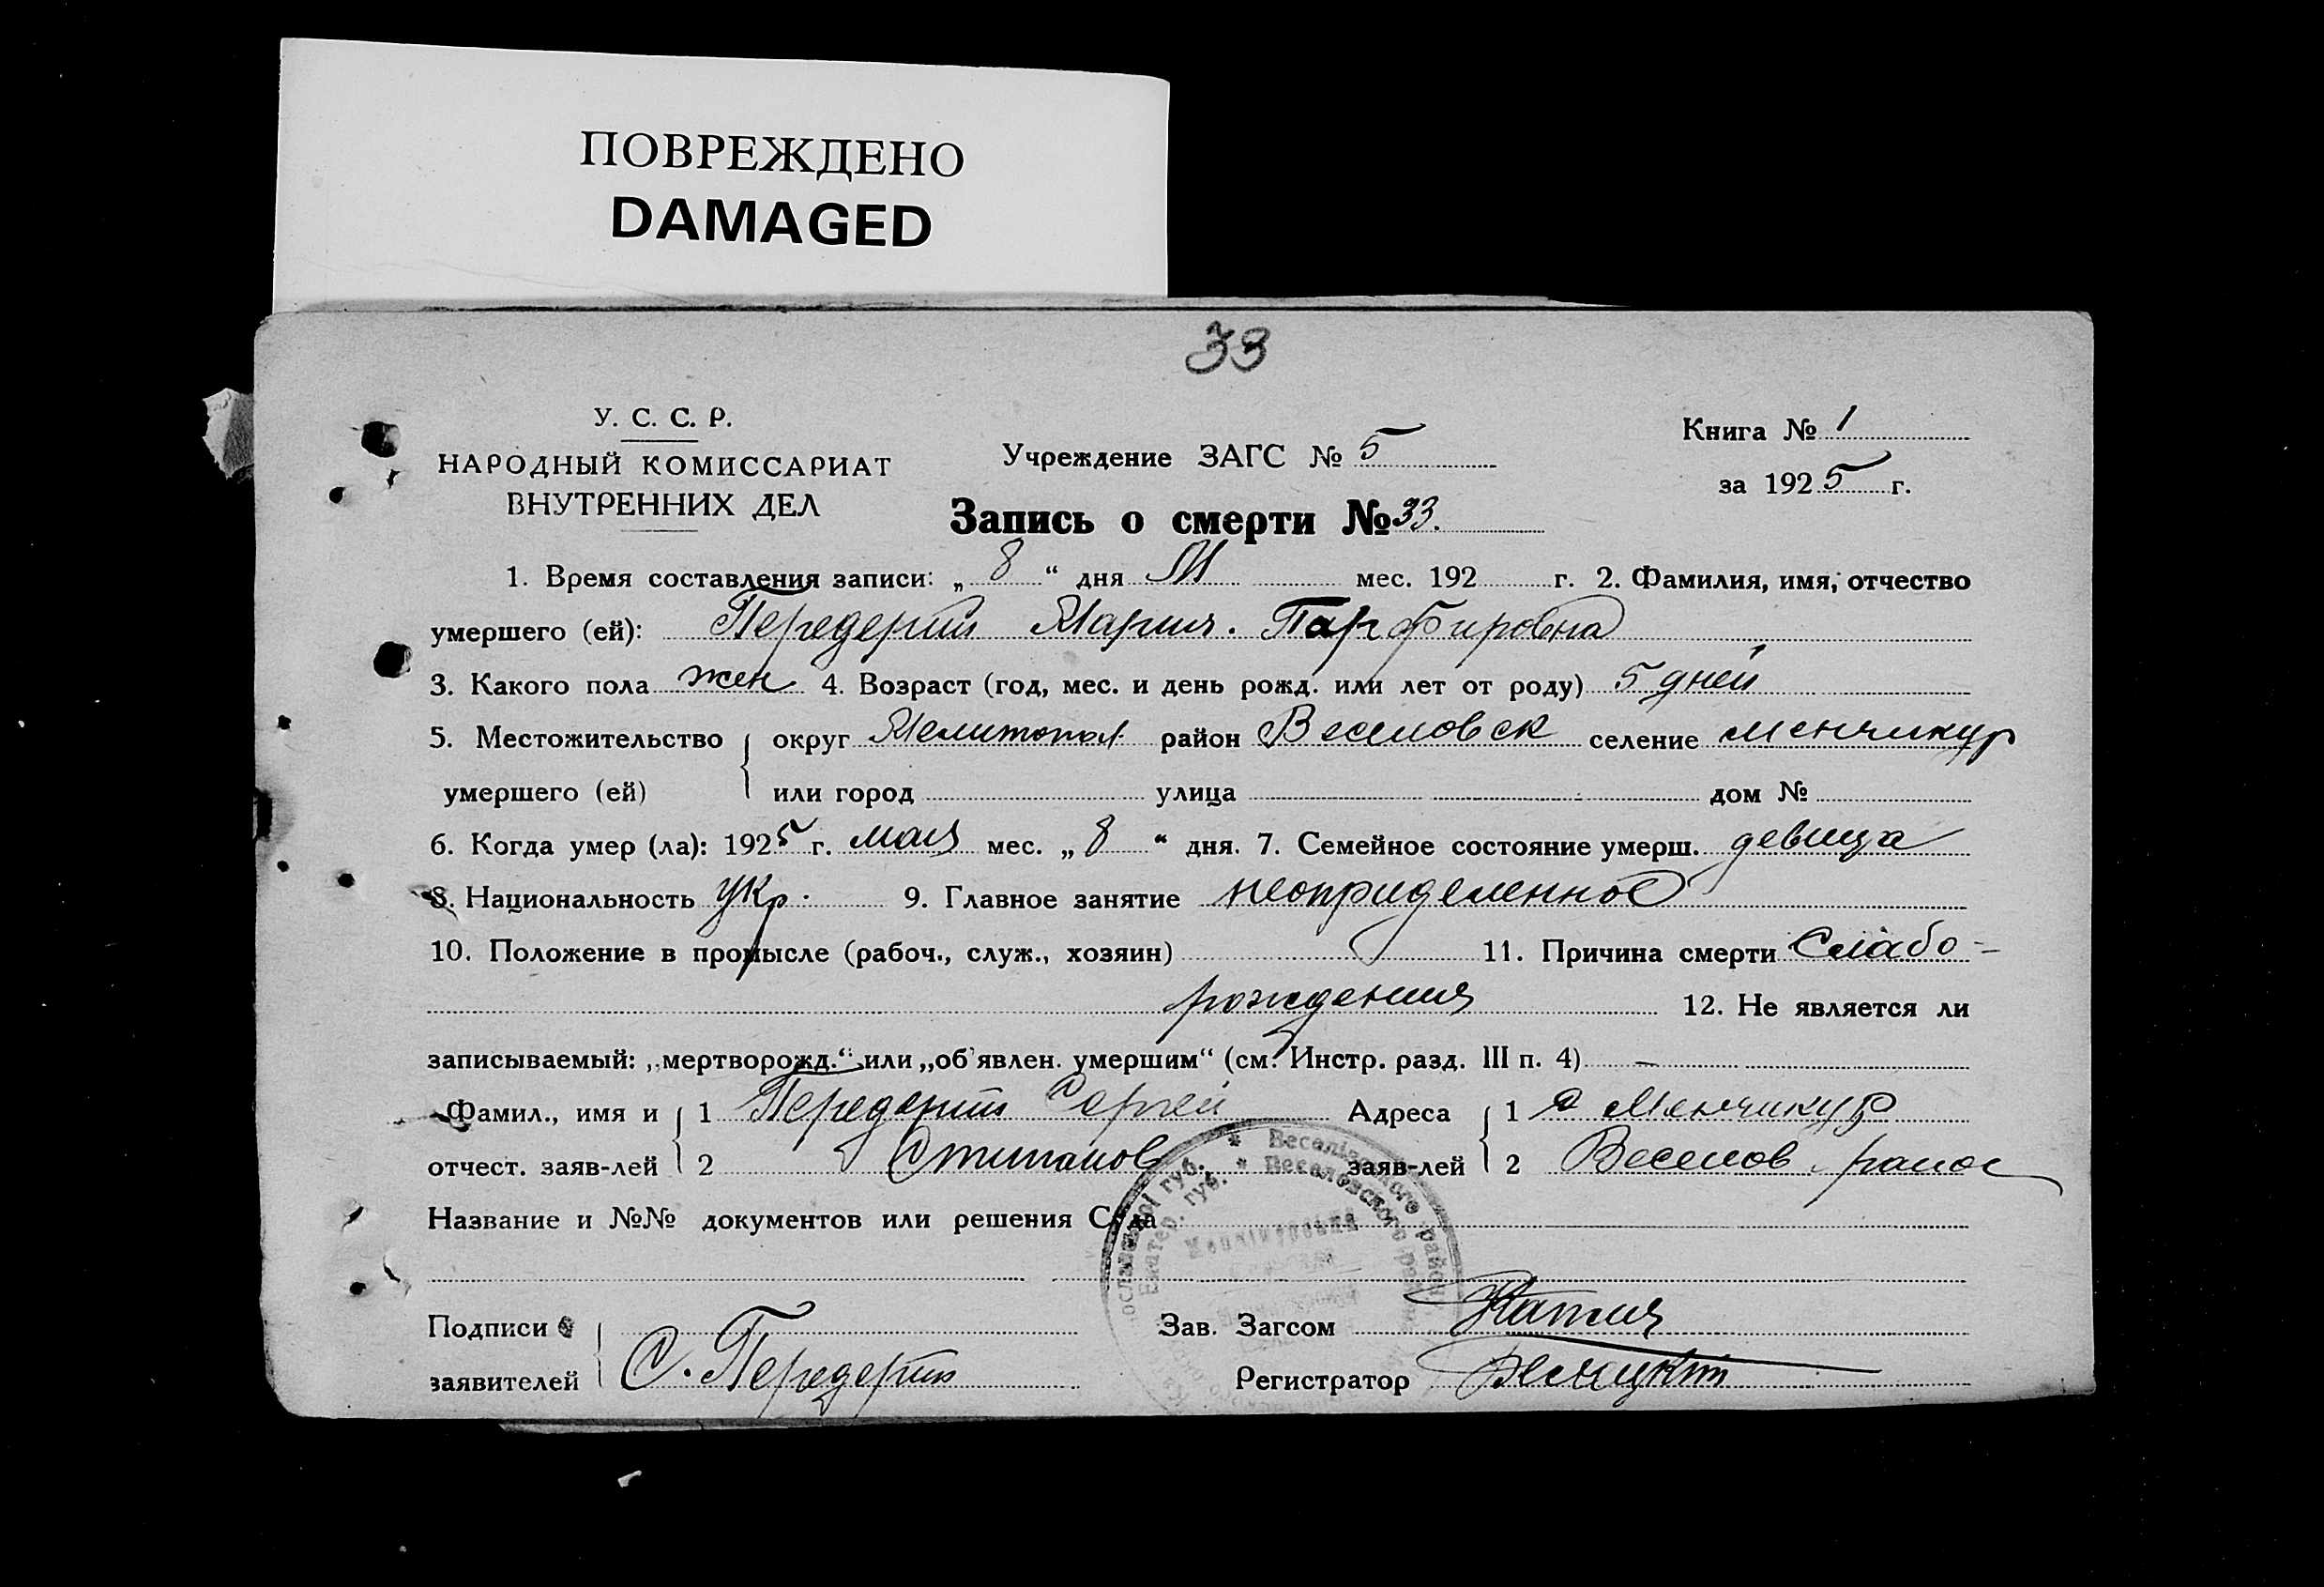 ПОВРЕЖДЕНО
DAMAGED
33
У. С. С. Р.
НАРОДНЫЙ КОМИССАРИАТ
ВНУТРЕННИХ ДЕЛ
Учреждение ЗАГС № 5
Книга № 1
за 1925 г.
Запись о смерти № 33.
1. Время составления записи: „ 8 “ дня М мес. 192 г. 2. Фамилия, имя, отчество
умершего (ей): Передерий Мария. Парфировна
3. Какого пола жен 4. Возраст (год, мес. и день рожд. или лет от роду) 5 дней
5. Местожительство округ Мелитопол. район Веселовск селение Менчикур
умершего (ей) или город улица дом №
6. Когда умер (ла): 1925 г. мая мес. „ 8 “ дня. 7. Семейное состояние умерш. девица
8. Национальность укр. 9. Главное занятие неопределенное
10. Положение в промысле (рабоч., служ., хозяин) 11. Причина смерти Слабо-
рождения 12. Не является ли
записываемый: „мертворожд.“ или „об'явлен. умершим“ (см. Инстр. разд. III п. 4) —
Фамил., имя и 1 Передерий Сергей Адреса 1 с Менчикур
отчест. заяв-лей 2 Стипанов. заяв-лей 2 Веселов. район
Название и №№ документов или решения Суда
Екатер. губ. * Веселовского
Подписи Зав. Загсом
заявителей С. Передерий Регистратор